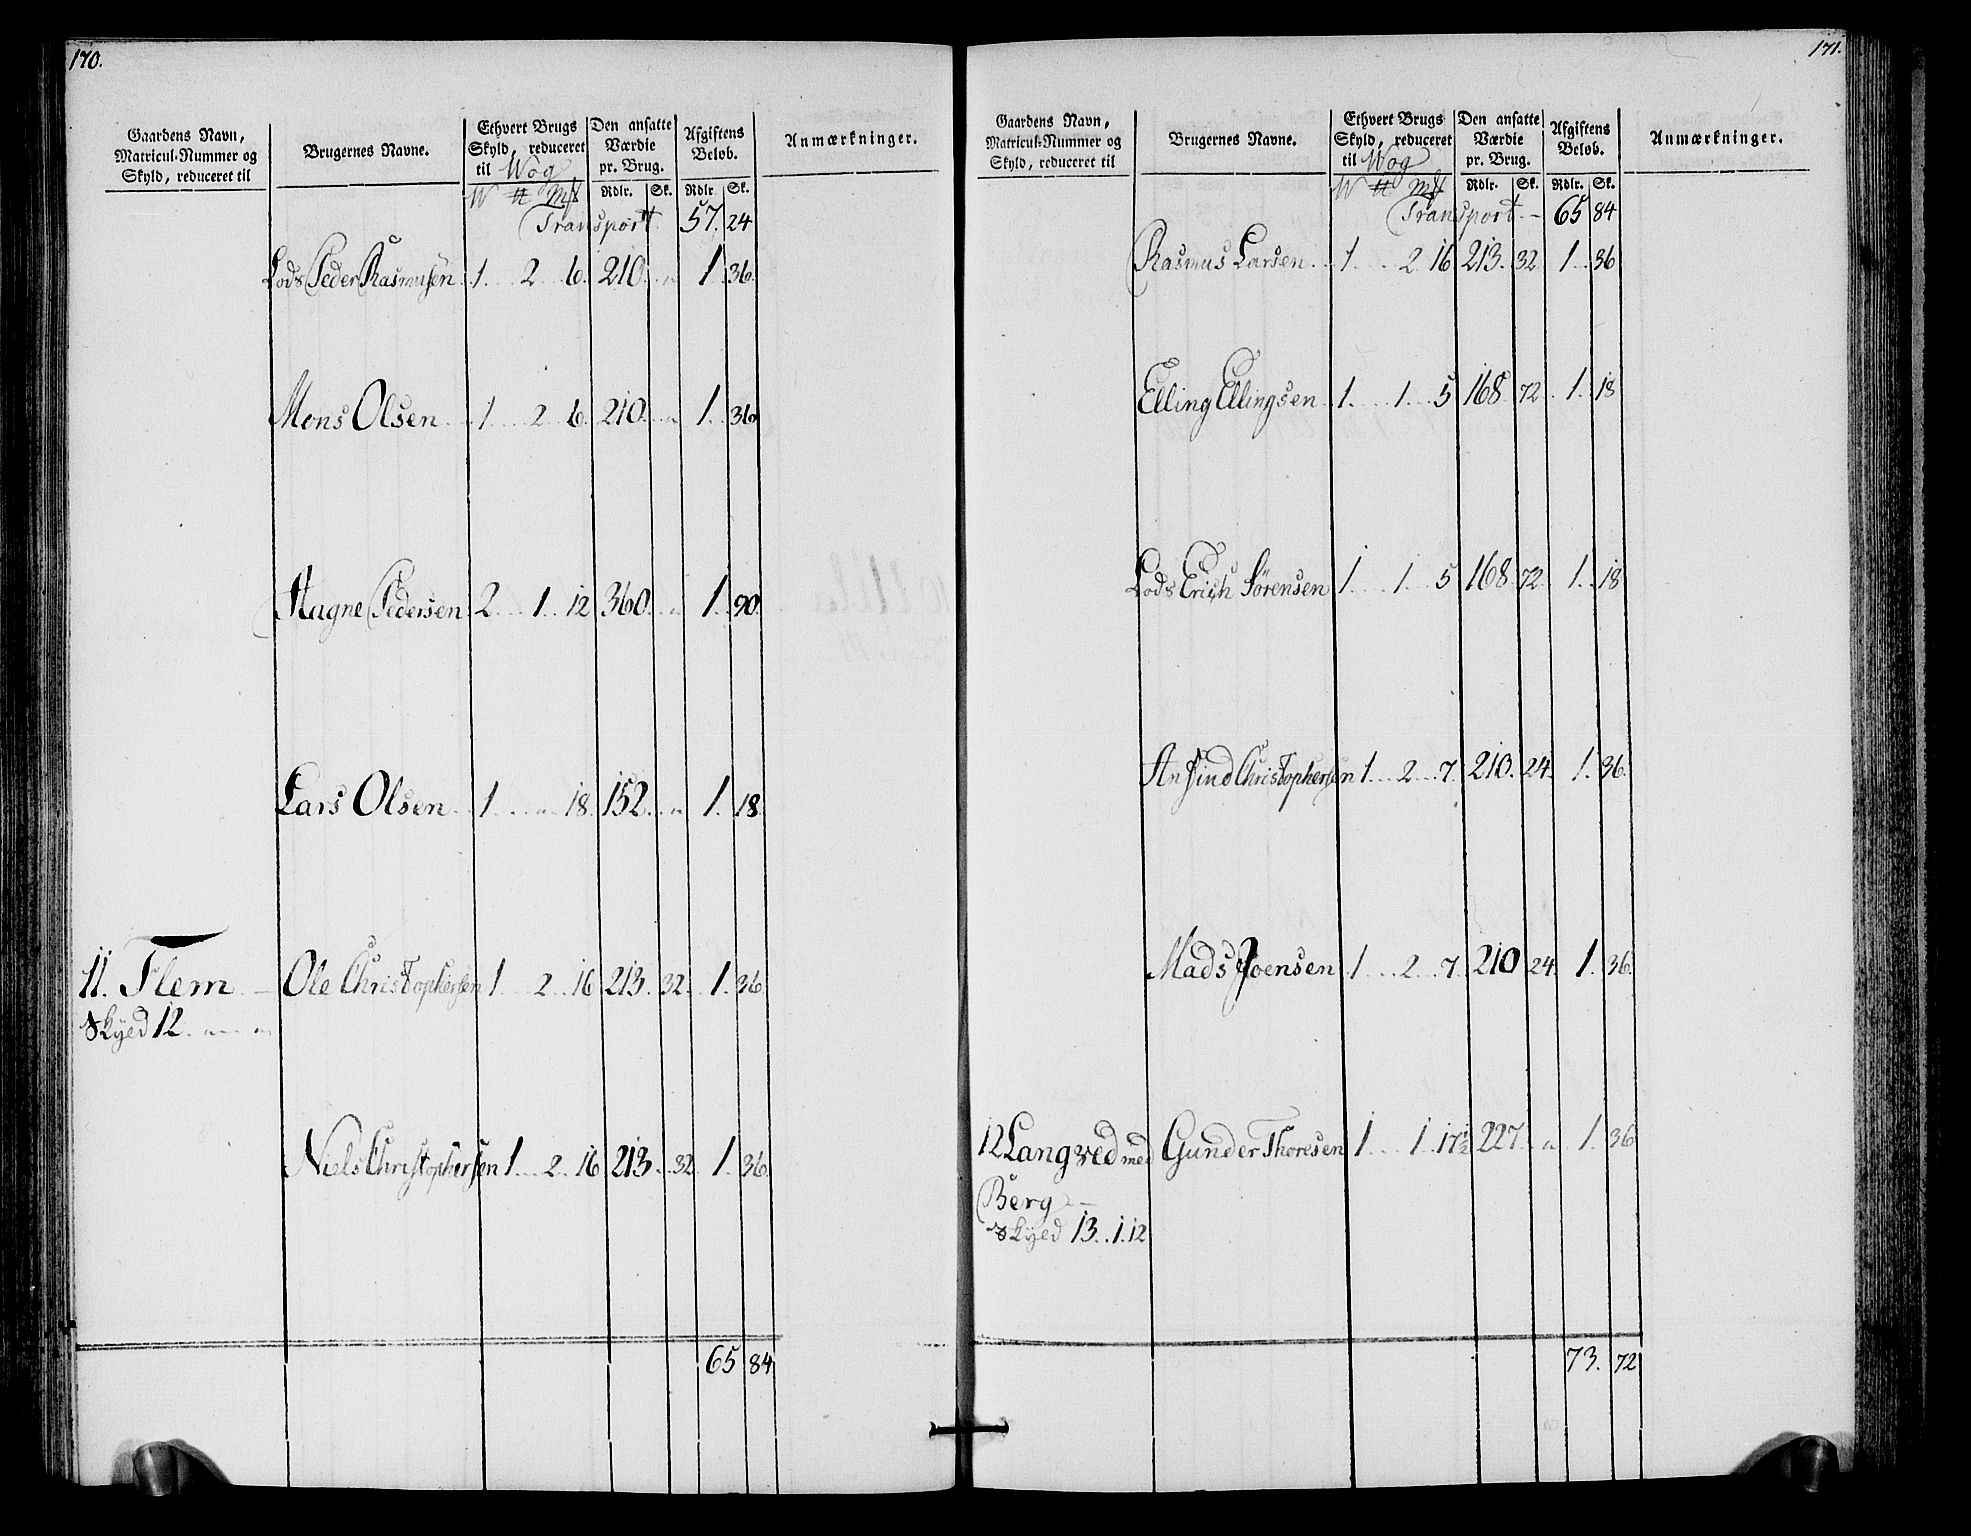 170.
Gaardens Navn,
Matricul-Nummer og
Skyld, reduceret til
Brugernes Navne.
Ethvert Brugs
Skyld, reduceret
til Wog
W ℔ mſt
Den ansatte
Værdie
pr. Brug.
Rdlr. Sk.
Afgiftens
Beløb.
Rdlr. Sk.
Anmærkninger.
Transport 57. 24
Lods Peder Rasmusen 1 . . 2 . . 6. 210. . „ 1. 36.
Mons Olsen 1 . . 2 . . 6. 210. . „ 1. 36
Augne Pedersen 2 . . 1 . . 12 360. . „ 1. 90.
Lars Olsen 1 . . „ . . 18. 152. . „ 1. 18.
11. Flem Ole Christophersen 1 . . 2 . . 16 213. 32. 1. 36
Skyld 12. „ „
Niels Christophersen 1 . . 2 . . 16 213. 32 1. 36
65 84
171.
Gaardens Navn,
Matricul-Nummer og
Skyld, reduceret til
Brugernes Navne.
Ethvert Brugs
Skyld, reduceret
til Wog
W ℔ mſt
Den ansatte
Værdie
pr. Brug.
Rdlr. Sk.
Afgiftens
Beløb.
Rdlr. Sk.
Anmærkninger.
Transport. – 65 84
Rasmus Larsen 1 . . 2 16 213. 32 1. 36
Elling Ellingsen 1 . . 1 . . 5 168 72 1. 18
Lods Erich Sørensen 1 . . 1 . . 5 168 72 1. 18
Anfind Christophersen 1 . . 2 . . 7. 210. 24. 1. 36.
Mads Joensen 1 . . 2 . . 7. 210 24. 1. 36.
12 Langved med Gunder Thoresen 1 . . 1 . 17½ 227. . „ 1. 36
Berg –
Skyld 13. . 1. 12
73. 72